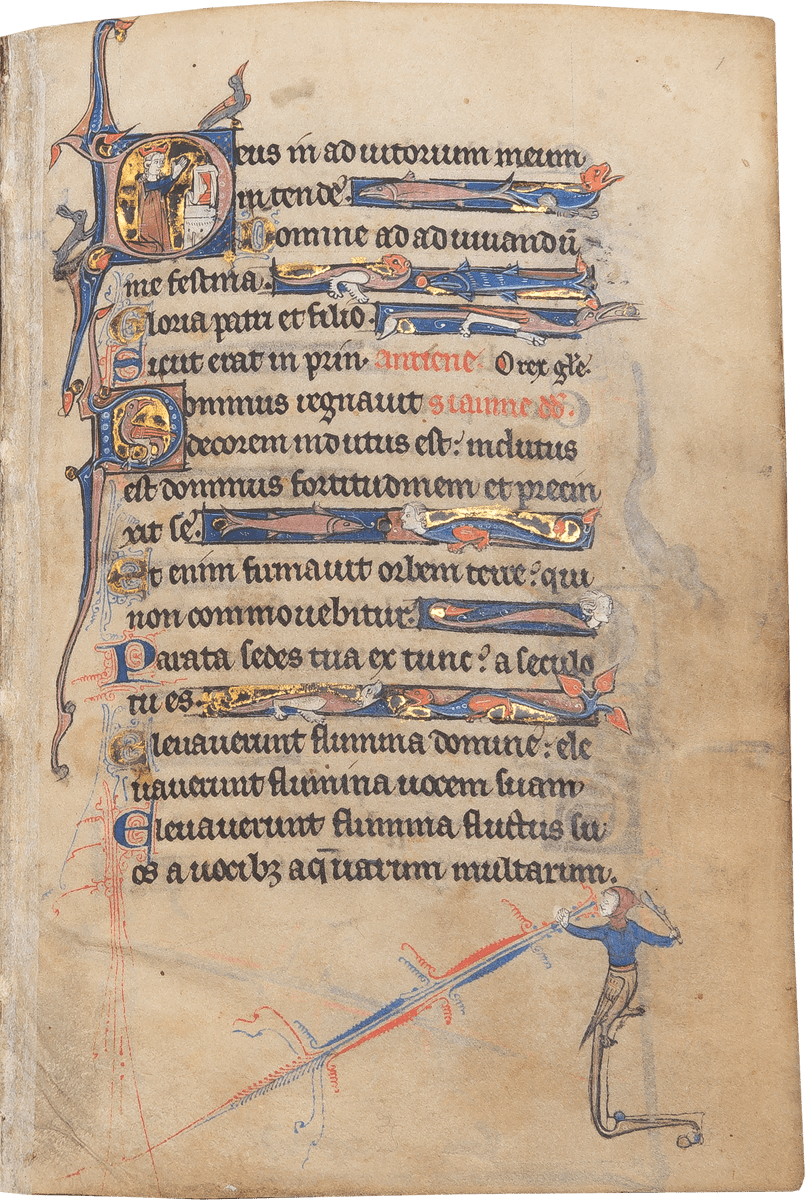 Deus in adiutorium meum
intende.
Domine ad adiuuandū
me festina.
Gloria patri et filio.
Sicut erat in prin. antiene. O rex gl̄e.
Dominus regnauit
decorem indutus est: indutus
est dominus fortitudinem et precin
xit se.
Et enim firmauit orbem terre: qui
non commouebitur.
Parata sedes tua ex tunc: a seculo
tu es.
Eleuauerunt flumina domine: ele
uauerunt flumina uocem suam
Eleuauerunt flumina fluctus su
os a uocibꝫ aq̄uarum multarum.